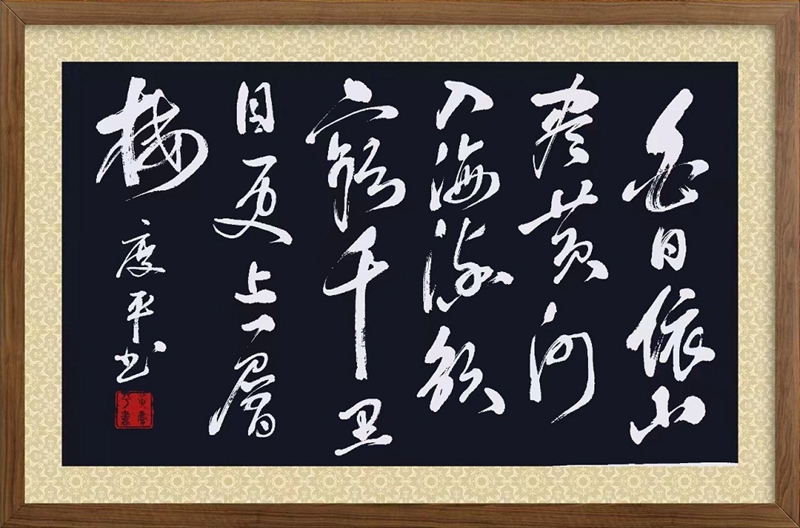 白日依山
盡黄河
入海流欲
窮千里
目更上一層
樓
度平书